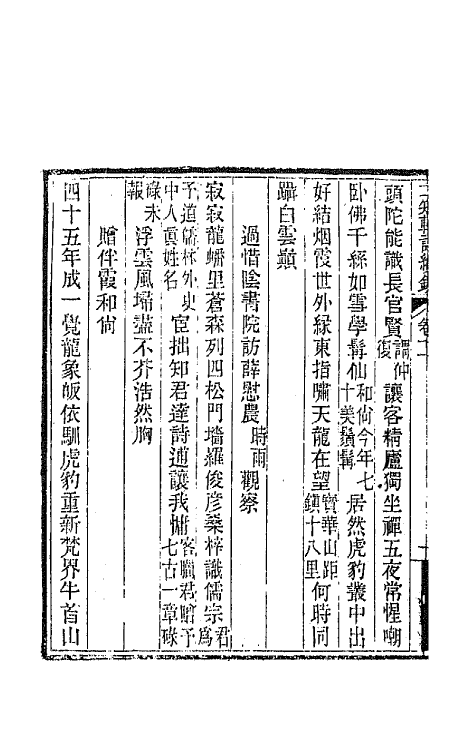 頭陀能識長官賢謂仲復讓客精廬獨坐禪五夜常惺嘲
臥佛千絲如雪學髯仙和尙今年七十美鬚髯居然虎豹叢中出
好結烟霞世外緣東指嘯天龍在望寶華山距鎭十八里何時同
躡白雲巔
過惜陰書院訪薛慰農時雨觀察
寂寂龍蟠里蒼森列四松門墻羅俊彥桑梓識儒宗君爲
予道儒林外史中人眞姓名宦拙知君達詩逋讓我慵客臘君贈予七古一章碌
碌未報浮雲風埽盡不芥浩然胸
贈伴霞和尙
四十五年成一覺龍象皈依馴虎豹重新梵界牛首山